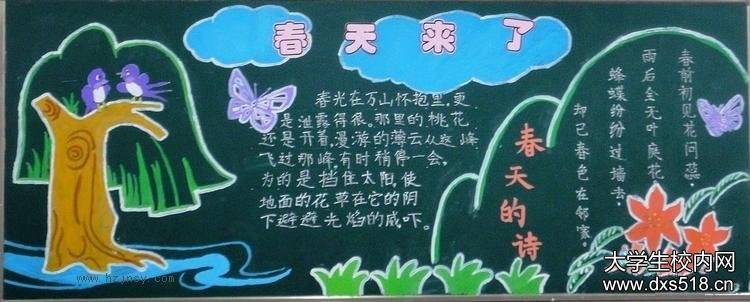 春天来了
春光在万山怀抱里,更
是泄露得很。那里的桃花
还是开着。漫游的薄云从这峰
飞过那峰,有时稍停一会。
为的是挡住太阳,使
地面的花草在它的阴
下避避光焰的威吓。
春天的诗
春前初见花问蕊,
雨后全无叶庭花
蜂蝶纷纷过墙去。
却已春色在邻家。
www.hzjncy.com
大学生校内网
www.dxs518.cn